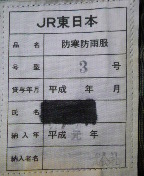 JR東日本
品名 防寒防雨服
号型 3 号
貸与年月 平成 年 月
氏名
納入年 平成元年
納入者名